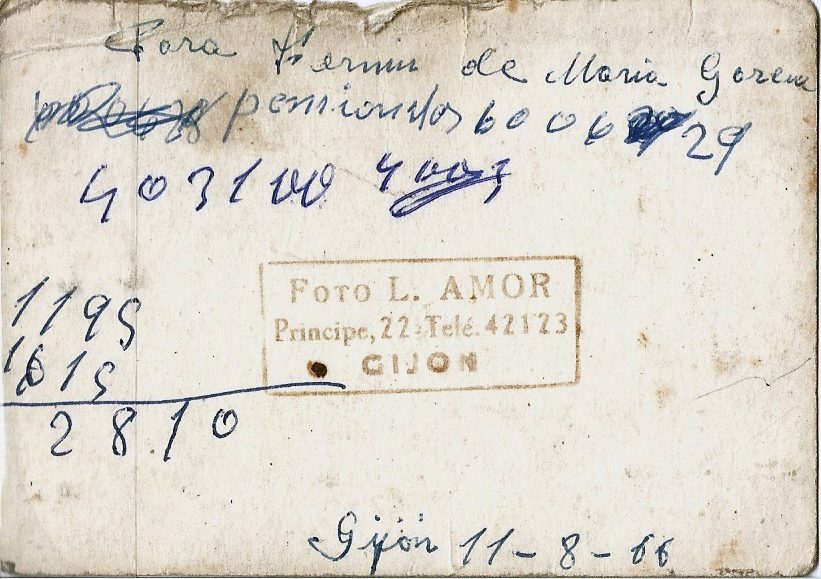 Para Fermin de Maria Gorena
pensionistas 6006 29
403100
1195
1615
2810
FOTO L. AMOR
Principe, 22-Telé. 42123
GIJON
Gijón 11-8-66